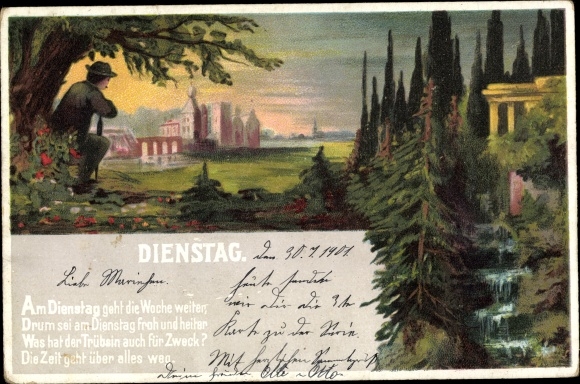 DIENSTAG. den 30.7.1901
Liebe Mariechen.
Am Dienstag geht die Woche weiter,
Drum sei am Dienstag froh und heiter
Was hat der Trübsin auch für Zweck?
Die Zeit geht über alles weg.
heute senden
wir Dir die 3te
Karte zu der Serie.
Mit herzlichen
Deine Otto